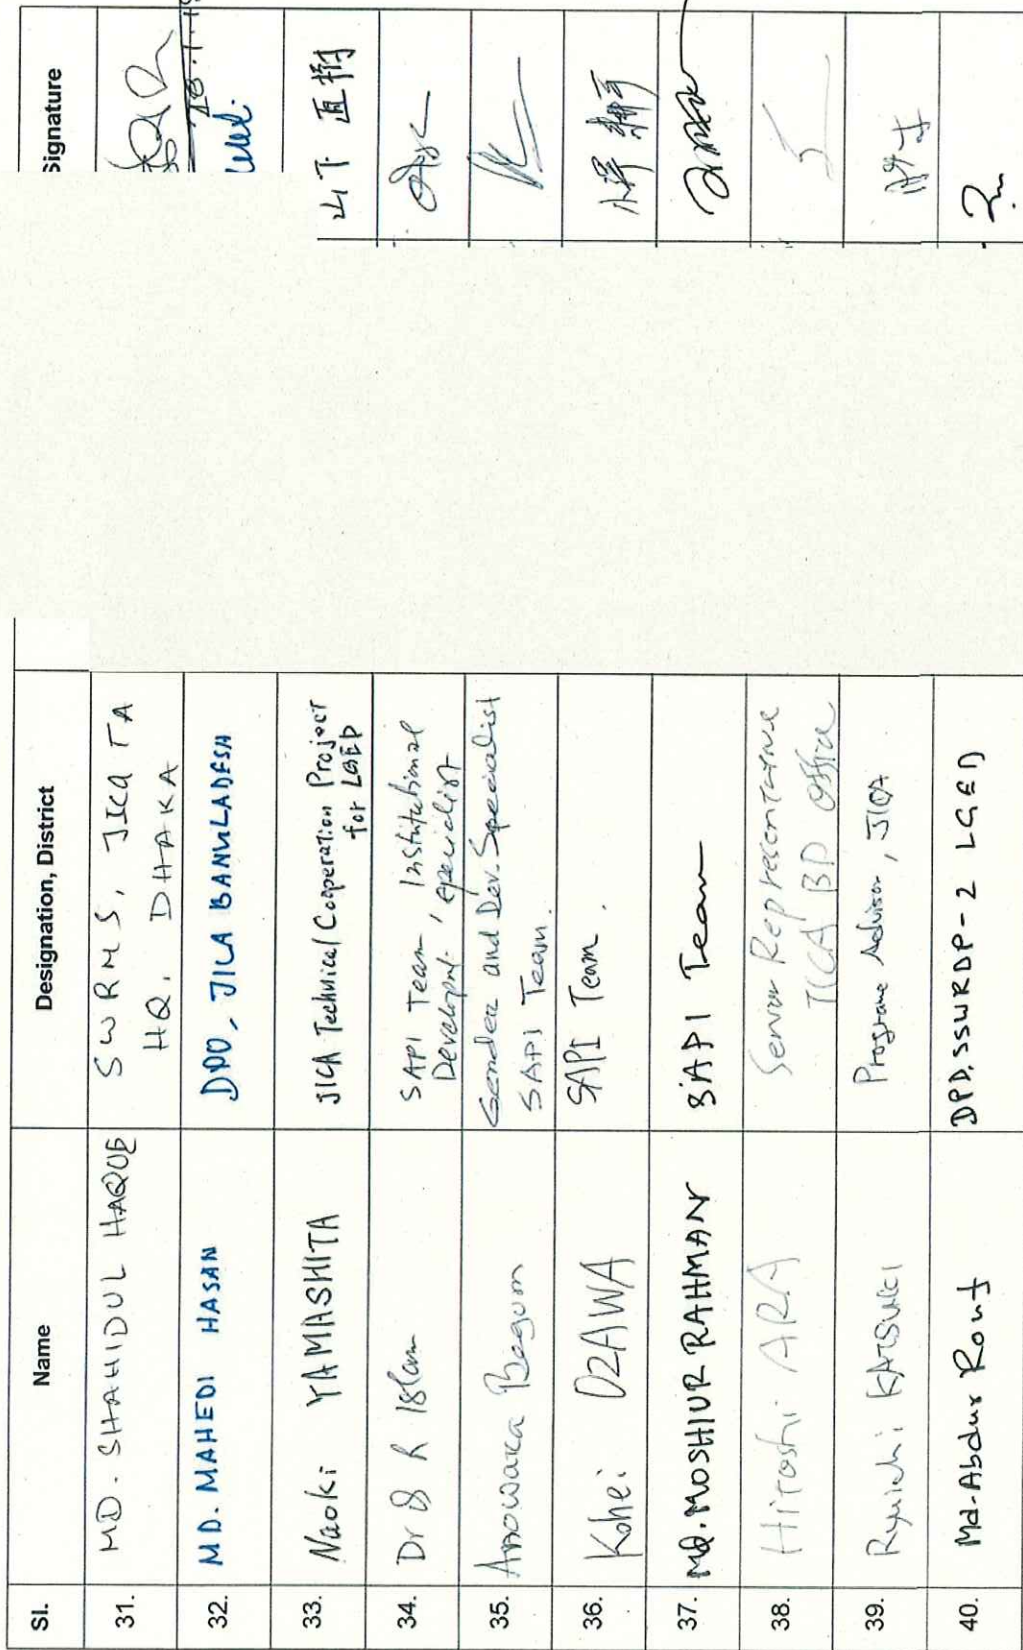 Sl. Name Designation, District Signature
31. MD. SHAHIDUL HAQUE SWRMS, JICA TA
HQ. DHAKA
32. MD. MAHEDI HASAN DPO, JICA BANGLADESH
33. Naoki YAMASHITA JICA Technical Cooperation Project
for LGED 山下 直樹
34. Dr S R Islam SAPI Team, Institutional
Development, specialist
35. Anowara Begum Gender and Dev. Specialist
SAPI Team.
36. Kohei OZAWA SAPI Team.
37. Md. MOSHIUR RAHMAN SAPI Team
38. Hiroshi ARA Senior Representative
JICA BD Office
39. Ryuichi KATSUKI Programe Advisor, JICA
40. Md. Abdur Rouf DPD. SSWRDP-2 LGED